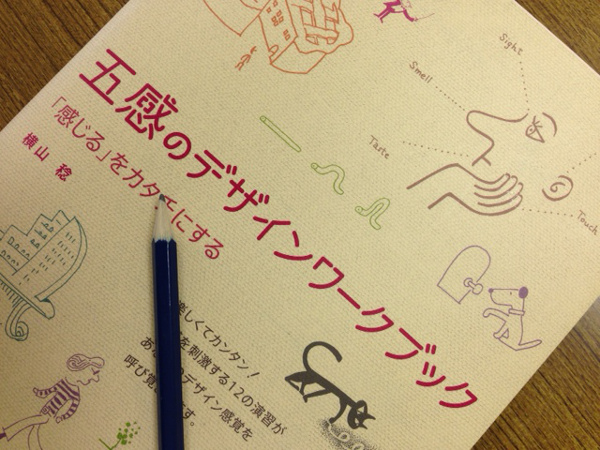 Sight
Smell
Taste
Touch
五感のデザインワークブック
「感じる」をカタチにする
横山 稔
楽しくてカンタン!
を刺激する12の演習が
あ デザイン感覚を
呼び覚 す。